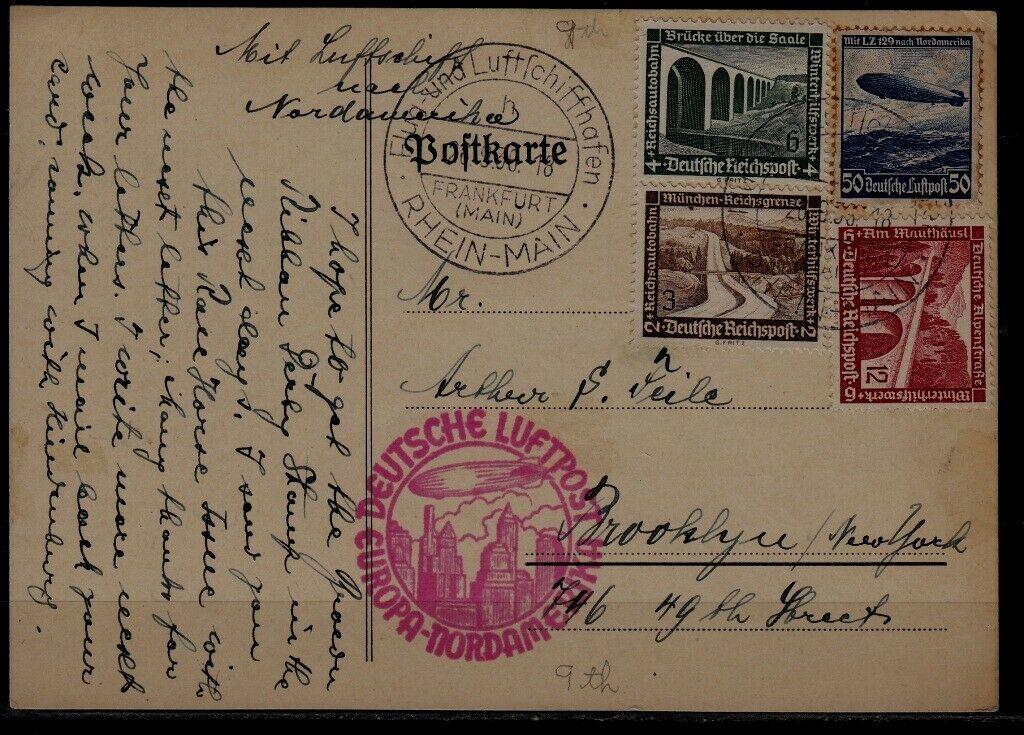 Mit Luftschiff
nach
Nordamerika
Flug- und Luftschiffhafen
FRANKFURT
(MAIN)
RHEIN-MAIN
Postkarte
9th
Brücke über die Saale
Reichsautobahn
Winterhilfswerk
6
4 + Deutsche Reichspost + 4
G. FRITZ
Mit LZ 129 nach Nordamerika
50 Deutsche Luftpost 50
München-Reichsgrenze
Reichsautobahn
Winterhilfswerk
3
2 + Deutsche Reichspost + 2
G. FRITZ
Deutsche Alpenstraße
Am Mauthäusl
12
6 Deutsche Reichspost 6
Winterhilfswerk
Mr.
Arthur S. Teile
Brooklyn / New York
746 49th Street
DEUTSCHE LUFTPOST
EUROPA-NORDAMERIKA
9th
I hope to get the Green
Derby Stamp in the
next days. I send you
this Race Horse Issue with
the next letter; many thanks for
your letters. I write more next
week, when I mail back your
card, coming with Hindenburg.